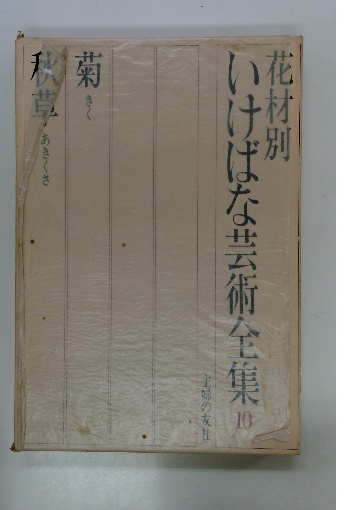 花材別
いけばな芸術全集 10
主婦の友社
菊 きく
秋草 あきくさ